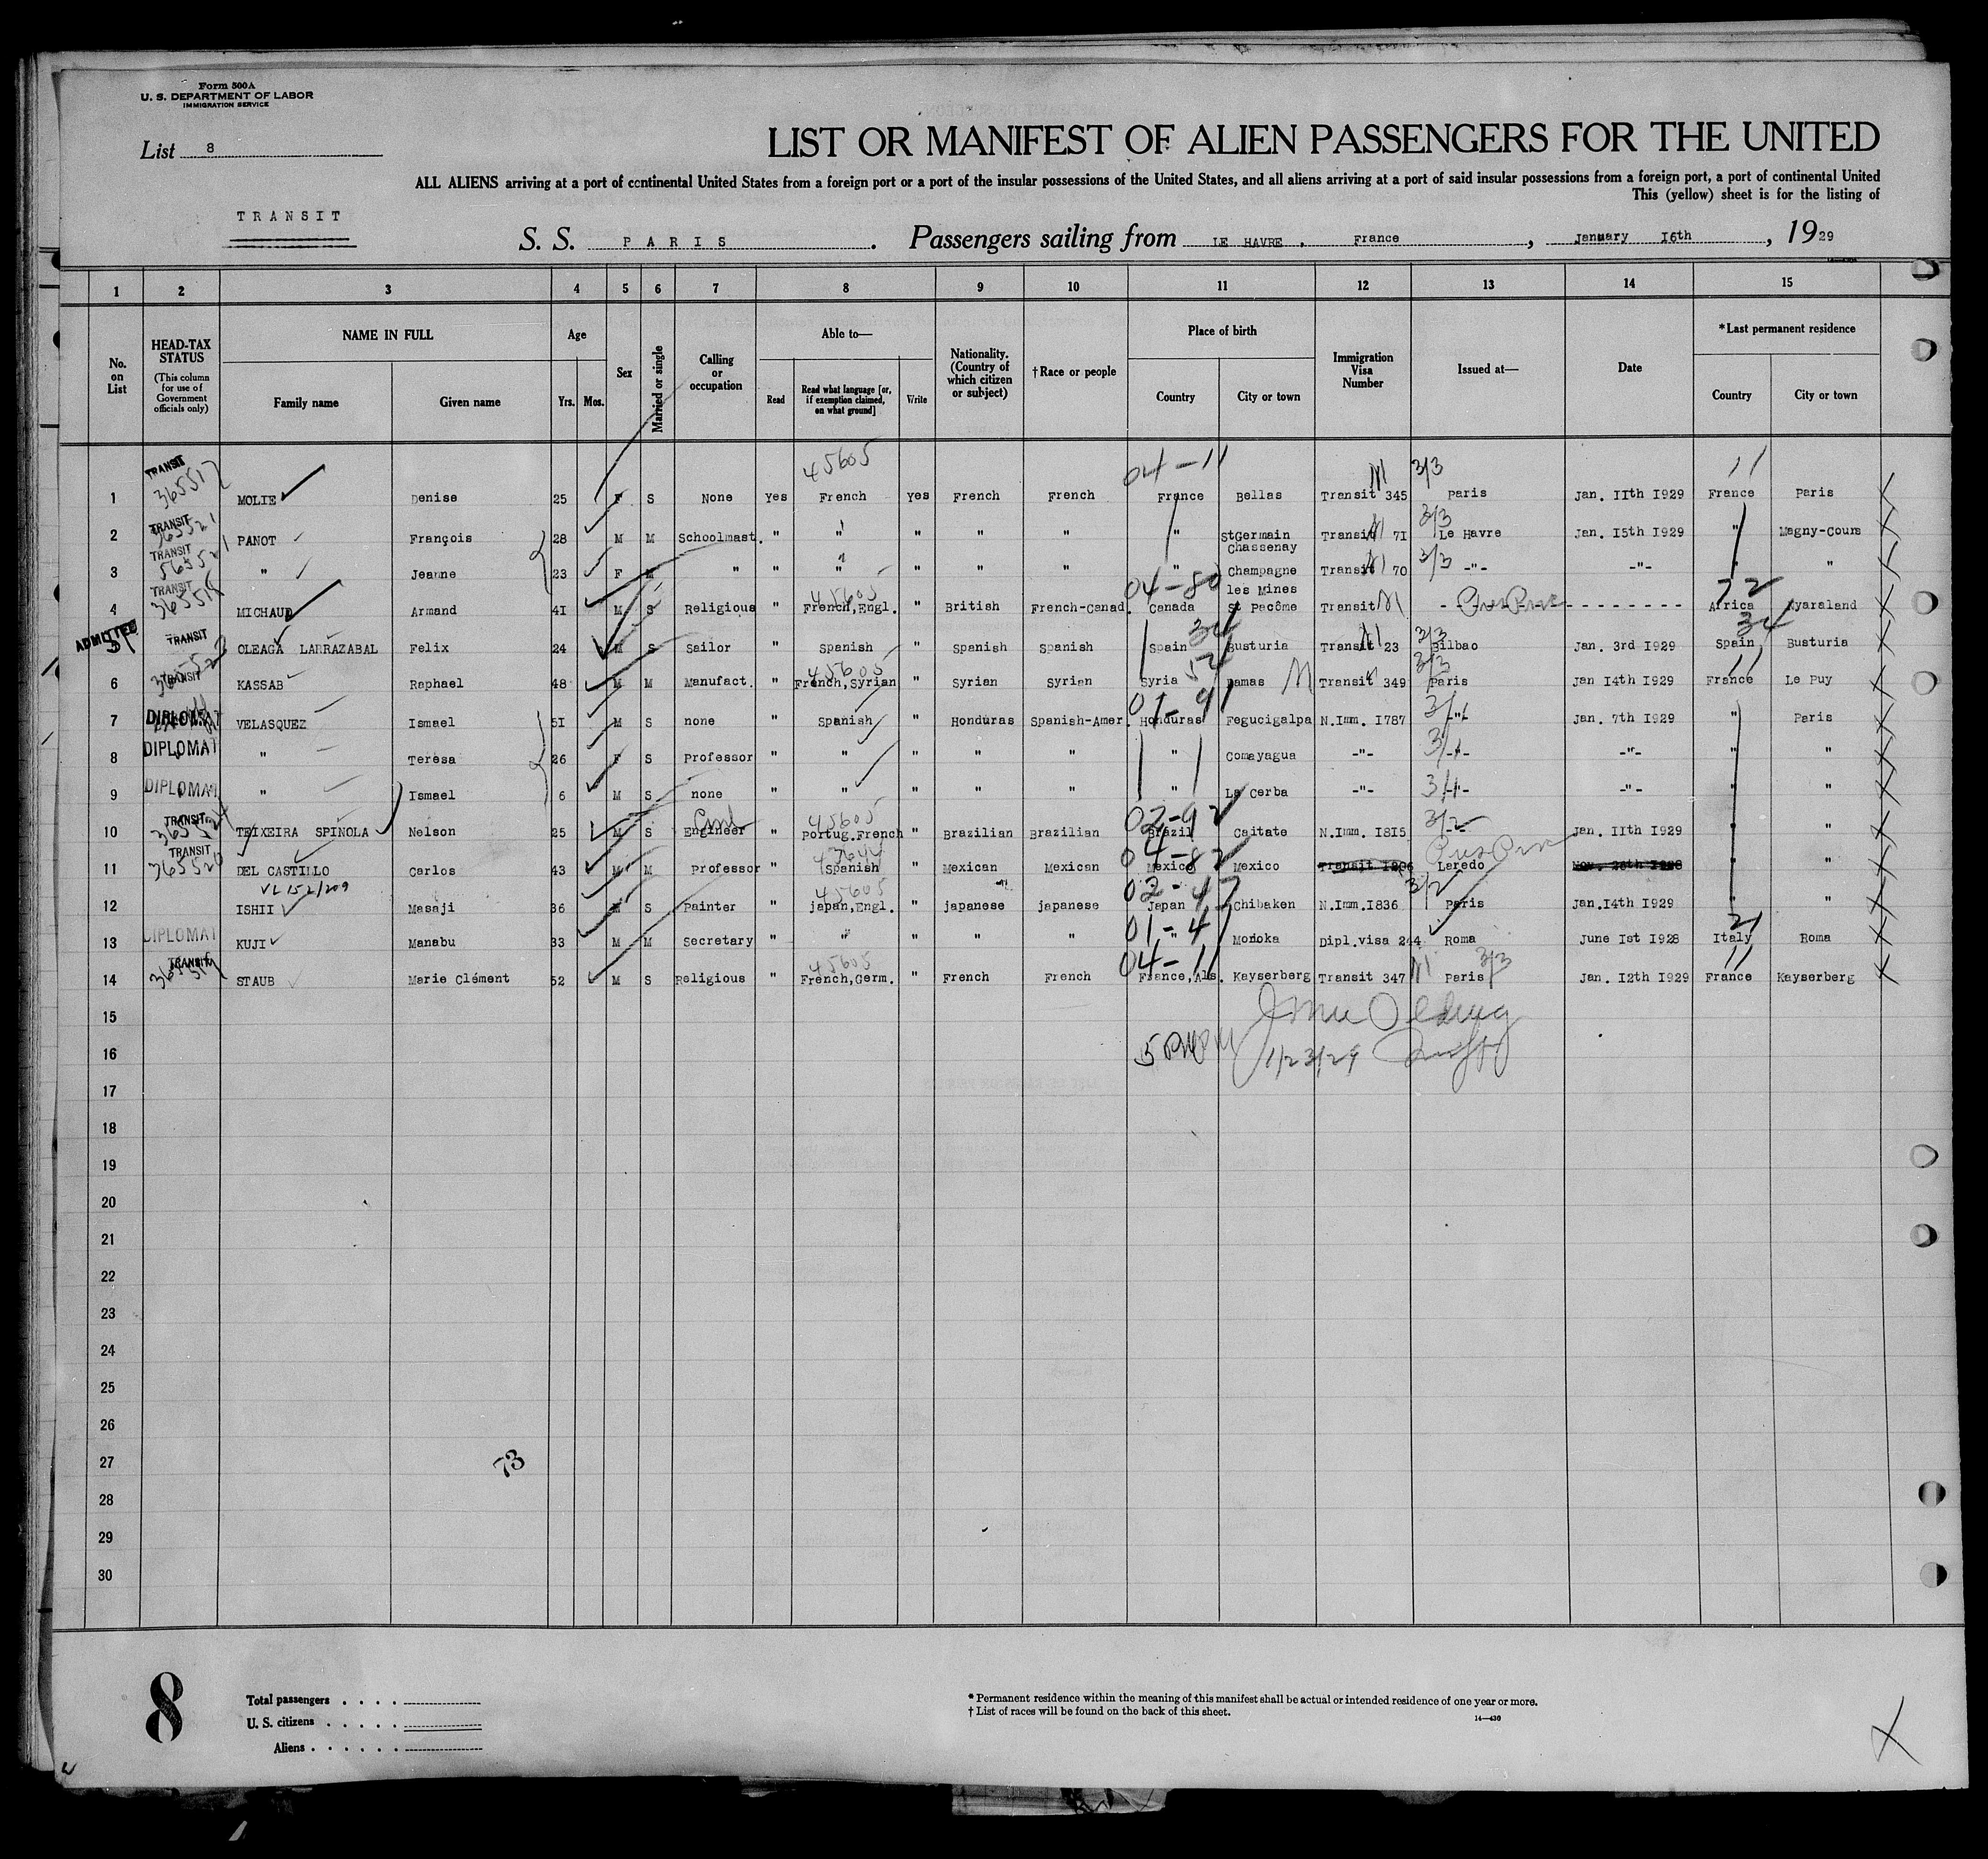 Form 500A
U. S. DEPARTMENT OF LABOR
IMMIGRATION SERVICE
List 8
LIST OR MANIFEST OF ALIEN PASSENGERS FOR THE UNITED
ALL ALIENS arriving at a port of continental United States from a foreign port or a port of the insular possessions of the United States, and all aliens arriving at a port of said insular possessions from a foreign port, a port of continental United
This (yellow) sheet is for the listing of
TRANSIT
S. S. PARIS. Passengers sailing from LE HAVRE, France, January I6th, 1929
1 2 3 4 5 6 7 8 9 10 11 12 13 14 15
No. on List
HEAD-TAX STATUS
(This column for use of Government officials only)
NAME IN FULL
Family name Given name
Age
Yrs. Mos.
Sex
Married or single
Calling or occupation
Able to—
Read
Read what language [or, if exemption claimed, on what ground]
Write
Nationality. (Country of which citizen or subject)
†Race or people
Place of birth
Country City or town
Immigration Visa Number
Issued at—
Date
*Last permanent residence
Country City or town
45605 04-11 3/3 11
1 TRANSIT 365517 MOLIE Denise 25 F S None Yes French Yes French French France Bellas Transit 345 Paris Jan. IIth I929 France Paris
3/3
2 TRANSIT 365521 PANOT François 28 M M Schoolmast. " " " " " " StGermain Chassenay Transit 7I Le Havre Jan. I5th I929 " Magny-Cours
3 TRANSIT " Jeanne 23 F M " " " " " " " Champagne les Mines Transit 70 3/3 -"- -"- " "
45605 04-80 72
4 TRANSIT 365518 MICHAUD Armand 4I M S Religious " French,Engl. " British French-Canad. Canada St Pacôme Transit Africa Nyaraland
ADMITTED 34 3/3 34
5 TRANSIT OLEAGA LARRAZABAL Felix 24 M S Sailor " Spanish " Spanish Spanish Spain Busturia Transit 23 Bilbao Jan. 3rd I929 Spain Busturia
45605 3/3 11
6 TRANSIT KASSAB Raphael 48 M M Manufact. " French,Syrian " Syrian Syrian Syria Damas Transit 349 Paris Jan I4th I929 France Le Puy
01-91
7 DIPLOMAT VELASQUEZ Ismael 5I M S none " Spanish " Honduras Spanish-Amer. Honduras Fegucigalpa N.Imm. I787 -"- Jan. 7th I929 " Paris
8 DIPLOMAT " Terèsa 26 F S Professor " " " " " " Comayagua -"- -"- -"- " "
9 DIPLOMAT " Ismael 6 M S none " " " " " " La Cerba -"- -"- -"- " "
45605 02-92 3/2
10 TRANSIT TEIXEIRA SPINOLA Nelson 25 M S Engineer " Portug.French " Brazilian Brazilian Brazil Caitate N.Imm. I8I5 -"- Jan. IIth I929 " "
04-82
11 TRANSIT 365520 DEL CASTILLO Carlos 43 M M Professor " Spanish " Mexican Mexican Mexico Mexico Laredo " "
45605 3/2
12 ISHII Masaji 36 M S Painter " japan,Engl. " japanese japanese Japan Chibaken N.Imm.I836 Paris Jan.I4th I929 " "
01-41 21
13 DIPLOMAT KUJI Manabu 33 M M Secretary " " " " " " Morioka Dipl.visa 244 Roma June Ist I928 Italy Roma
45605 04-11 3/3 11
14 TRANSIT 365519 STAUB Marie Clément 52 M S Religious " French,Germ. " French French France,Als. Kayserberg Transit 347 Paris Jan. I2th I929 France Kayserberg
15
16 1/23/29
17
18
19
20
21
22
23
24
25
26
27 73
28
29
30
8
Total passengers
U. S. citizens
Aliens
* Permanent residence within the meaning of this manifest shall be actual or intended residence of one year or more.
† List of races will be found on the back of this sheet.
14—430